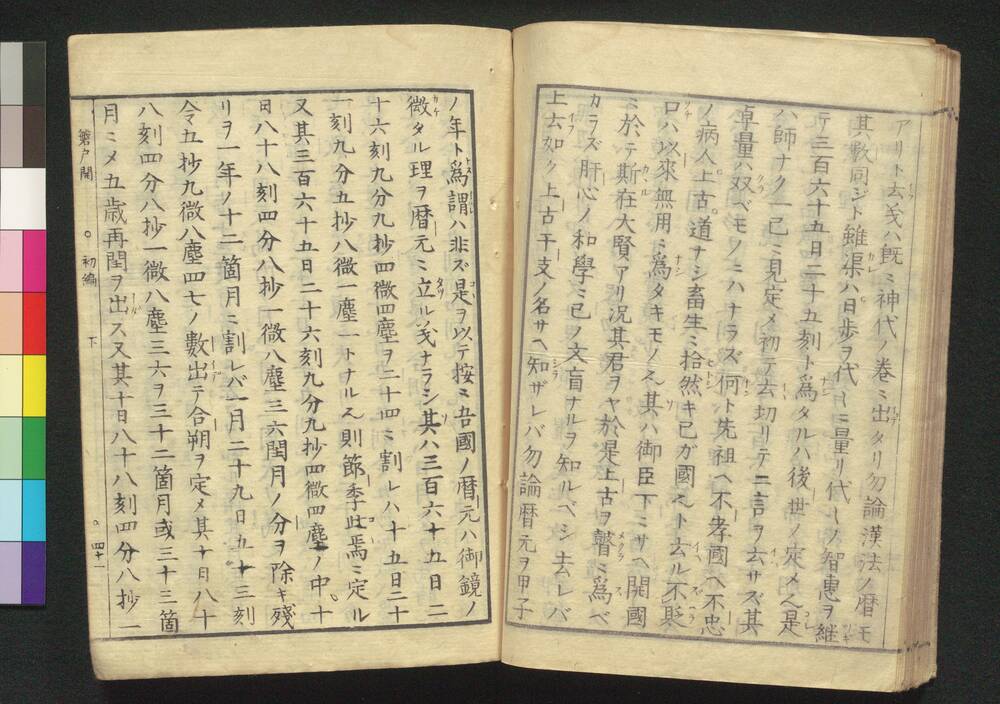 アリト去義ハ既ミ神代ノ巻ミ出タリ勿論漢法ノ暦モ
其數同ジト雖渠ハ日歩ヲ代〳〵ミ量リ代〳〵ノ智惠ヲ継
テ三百六十五日二十五刻ト爲タルハ後世ノ定メ是
ハ師ナク一己ミ見定メ初テ去切リテ二言ヲ去サズ其
卓量ハ双ベモノニハナラズ何ト先祖ヘ不孝國ヘ不忠
ノ病人上古道ナシ畜生ミ拾然キ己ガ國ヘト去ル不貶
口ハ以來無用ミ爲タキモノ其ハ御臣下ミサヘ開國
ミ於テ斯在大賢アリ況其君ヲヤ於是上古ヲ瞽ミ爲ベ
カラズ肝心ノ和學ミ己ノ文盲ナルヲ知ルベシ去レバ
上去如ク上古干支ノ名サヘ知ザレバ勿論暦元ヲ甲子
ノ年ト爲謂ハ非ズ是ヲ以テ按ミ吾國ノ暦元ハ御鏡ノ
微タル理ヲ暦元ミ立ル義ナラシ其ハ三百六十五日二
十六刻九分九抄四微四塵ヲ二十四ミ割レハ十五日二十
一刻九分五抄八微一塵一トナル則節季此焉ミ定ル
又其三百六十五日二十六刻九分九抄四微四塵ノ中十
日八十八刻四分八抄一微八塵三六閏月ノ分ヲ除キ殘
リヲ一年ノ十二箇月ミ割レバ一月二十九日五十三刻
令五抄九微八塵四七ノ數出テ合朔ヲ定メ其十日八十
八刻四分八抄一微八塵三六ヲ三十二箇月或三十三箇
月ミメ五歳再閏ヲ出ス又其十日八十八刻四分八抄一
磐戸開 初編 下 四十一